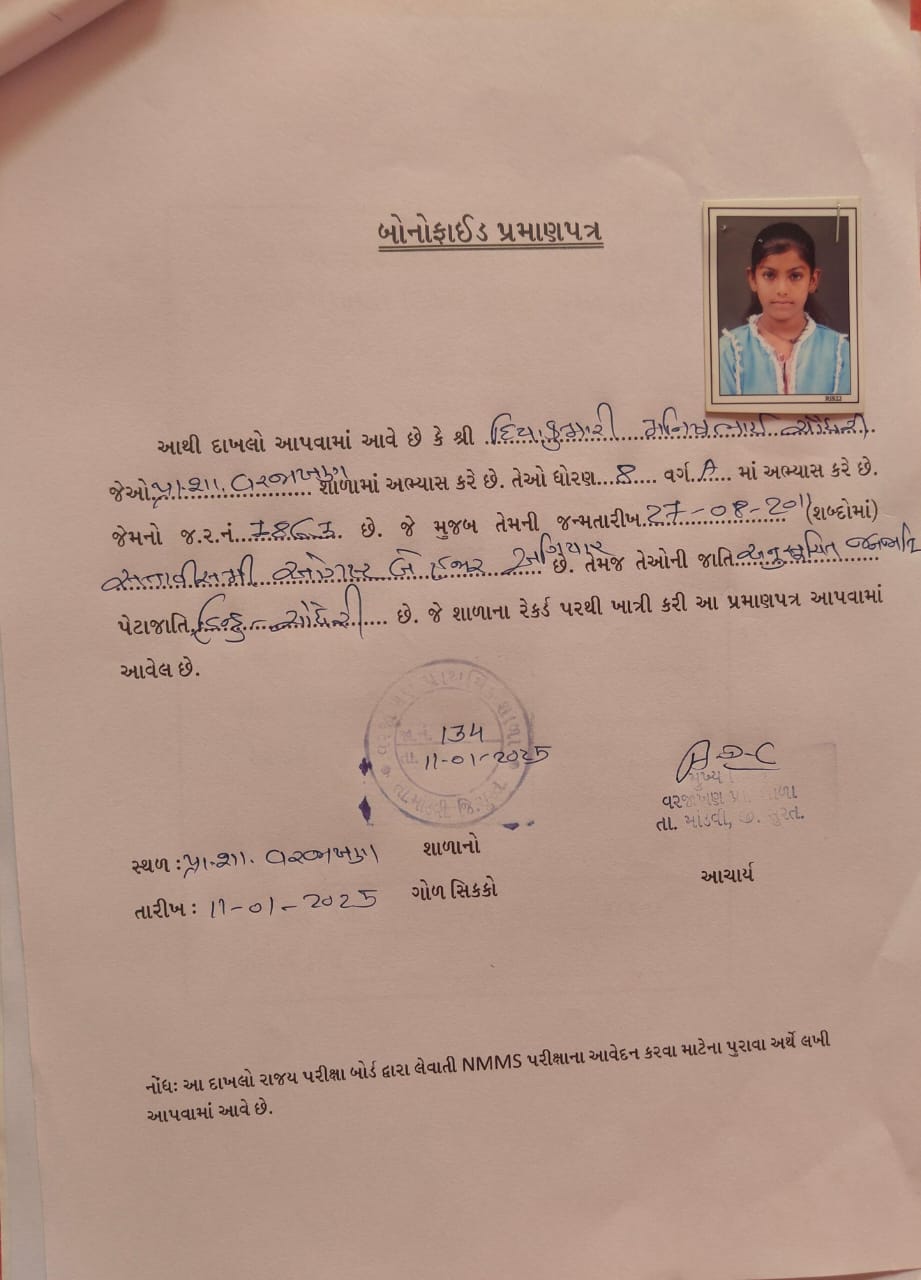 બોનોફાઈડ પ્રમાણપત્ર
RIS22
આથી દાખલો આપવામાં આવે છે કે શ્રી દિયાકુમારી મનિષભાઈ ચૌધરી.
જેઓ પ્રા.શા. વરજાખણ શાળામાં અભ્યાસ કરે છે. તેઓ ધોરણ...8.... વર્ગ.A... માં અભ્યાસ કરે છે.
જેમનો જ.ર.નં..7863. છે. જે મુજબ તેમની જન્મતારીખ.27-08-2011 (શબ્દોમાં)
સતાવીસમી ઓગષ્ટ બે હજાર અગિયાર છે. તેમજ તેઓની જાતિ અનુસૂચિત જનજાતિ
પેટાજાતિ.હિન્દુ ચૌધરી.... છે. જે શાળાના રેકર્ડ પરથી ખાત્રી કરી આ પ્રમાણપત્ર આપવામાં
આવેલ છે.
જા.નં. 134
તા. 11-01-2025
મુખ્ય
વરજાખણ પ્રા. શાળા
તા. માંડવી, જી. સુરત.
સ્થળ : પ્રા.શા. વરજાખણ
શાળાનો
તારીખ : 11-01-2025
ગોળ સિકકો
આચાર્ય
નોંધ: આ દાખલો રાજય પરીક્ષા બોર્ડ દ્વારા લેવાતી NMMS પરીક્ષાના આવેદન કરવા માટેના પુરાવા અર્થે લખી
આપવામાં આવે છે.